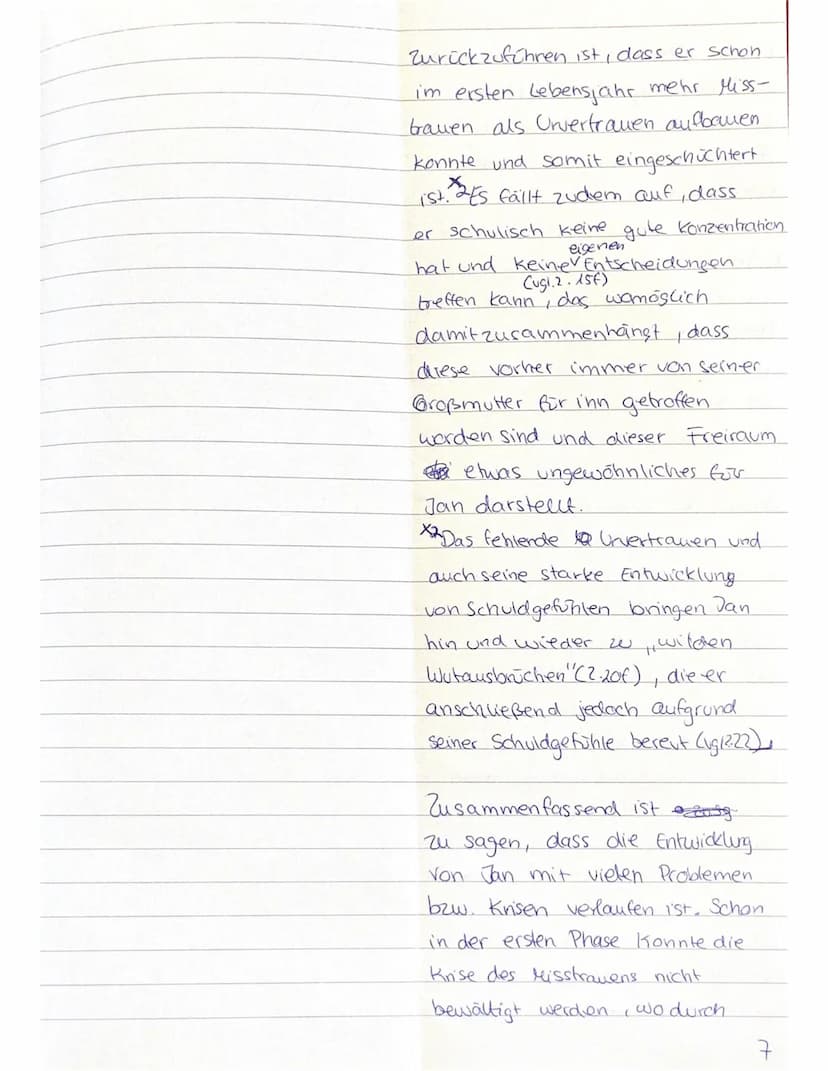 zurückzuführen ist, dass er schon
im ersten Lebensjahr mehr Miss-
trauen als Urvertrauen aufbauen
konnte und somit eingeschüchtert
ist. x2 Es fällt zudem auf, dass
er schulisch keine gute Konzentration
eigenen
hat und keine Entscheidungen
(vgl. Z. 15f)
treffen kann, das womöglich
damit zusammenhängt, dass
diese vorher immer von seiner
Großmutter für ihn getroffen
worden sind und dieser Freiraum
etwas ungewöhnliches für
Jan darstellt.
x2 Das fehlende Urvertrauen und
auch seine starke Entwicklung
von Schuldgefühlen bringen Jan
hin und wieder zu „wilden
Wutausbrüchen" (Z. 20f), die er
anschließend jedoch aufgrund
seiner Schuldgefühle bereut (vgl Z. 22)
Zusammenfassend ist
zu sagen, dass die Entwicklung
von Jan mit vielen Problemen
bzw. Krisen verlaufen ist. Schon
in der ersten Phase konnte die
Krise des Misstrauens nicht
bewältigt werden, wodurch
7